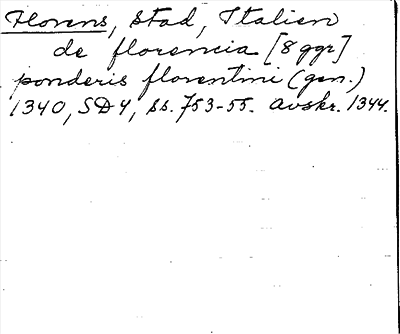 Florens, stad, Italien
de florencia [8 ggr]
ponderis florentini (gen.)
1340, SD4, ss. 753-55. Avskr. 1344.